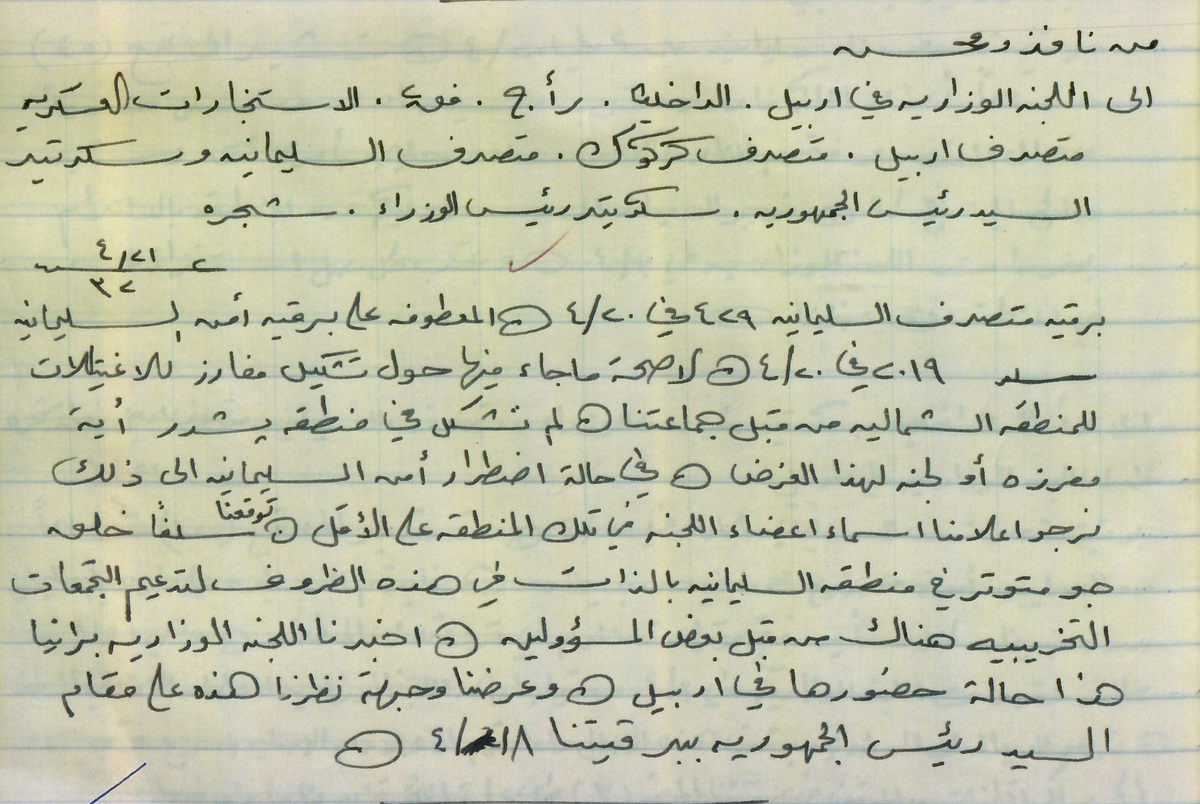 من نافذ ومحسن
الى اللجنه الوزاريه في اربيل . الداخليه . ر أ . ج . فق٢ . الاستخبارات العسكريه
متصرف اربيل . متصرف كركوك . متصرف السليمانيه وسكرتير
السيد رئيس الجمهوريه . سكرتير رئيس الوزراء . شجره
٤/٢١
٣٢
برقية متصرف السليمانيه ٤٢٩ في ٤/٢٠ ( المعطوفه على برقيه أمن السليمانيه
٢٠١٩ في ٤/٢٠ ( لا صحة ما جاء فيها حول تشكيل مفارز للاغتيالات
للمنطقه الشماليه من قبل جماعتنا ( لم نشكل في منطقه پشدر أية
مفرزه أو لجنه لهذا الغرض ( في حالة اضطرار أمن السليمانيه الى ذلك
نرجو اعلامنا اسماء اعضاء اللجنه في تلك المنطقه على الأقل ( توقعنا سلفا خلق
جو متوتر في منطقه السليمانيه بالذات في هذه الظروف لتدعيم التجمعات
التخريبيه هناك من قبل بعض المسؤولين ( اخبرنا اللجنه الوزاريه برانيا
هذا حالة حضورها في اربيل ( وعرضنا وجهة نظرنا هذه على مقام
السيد رئيس الجمهوريه ببرقيتنا ١٨/٤ (